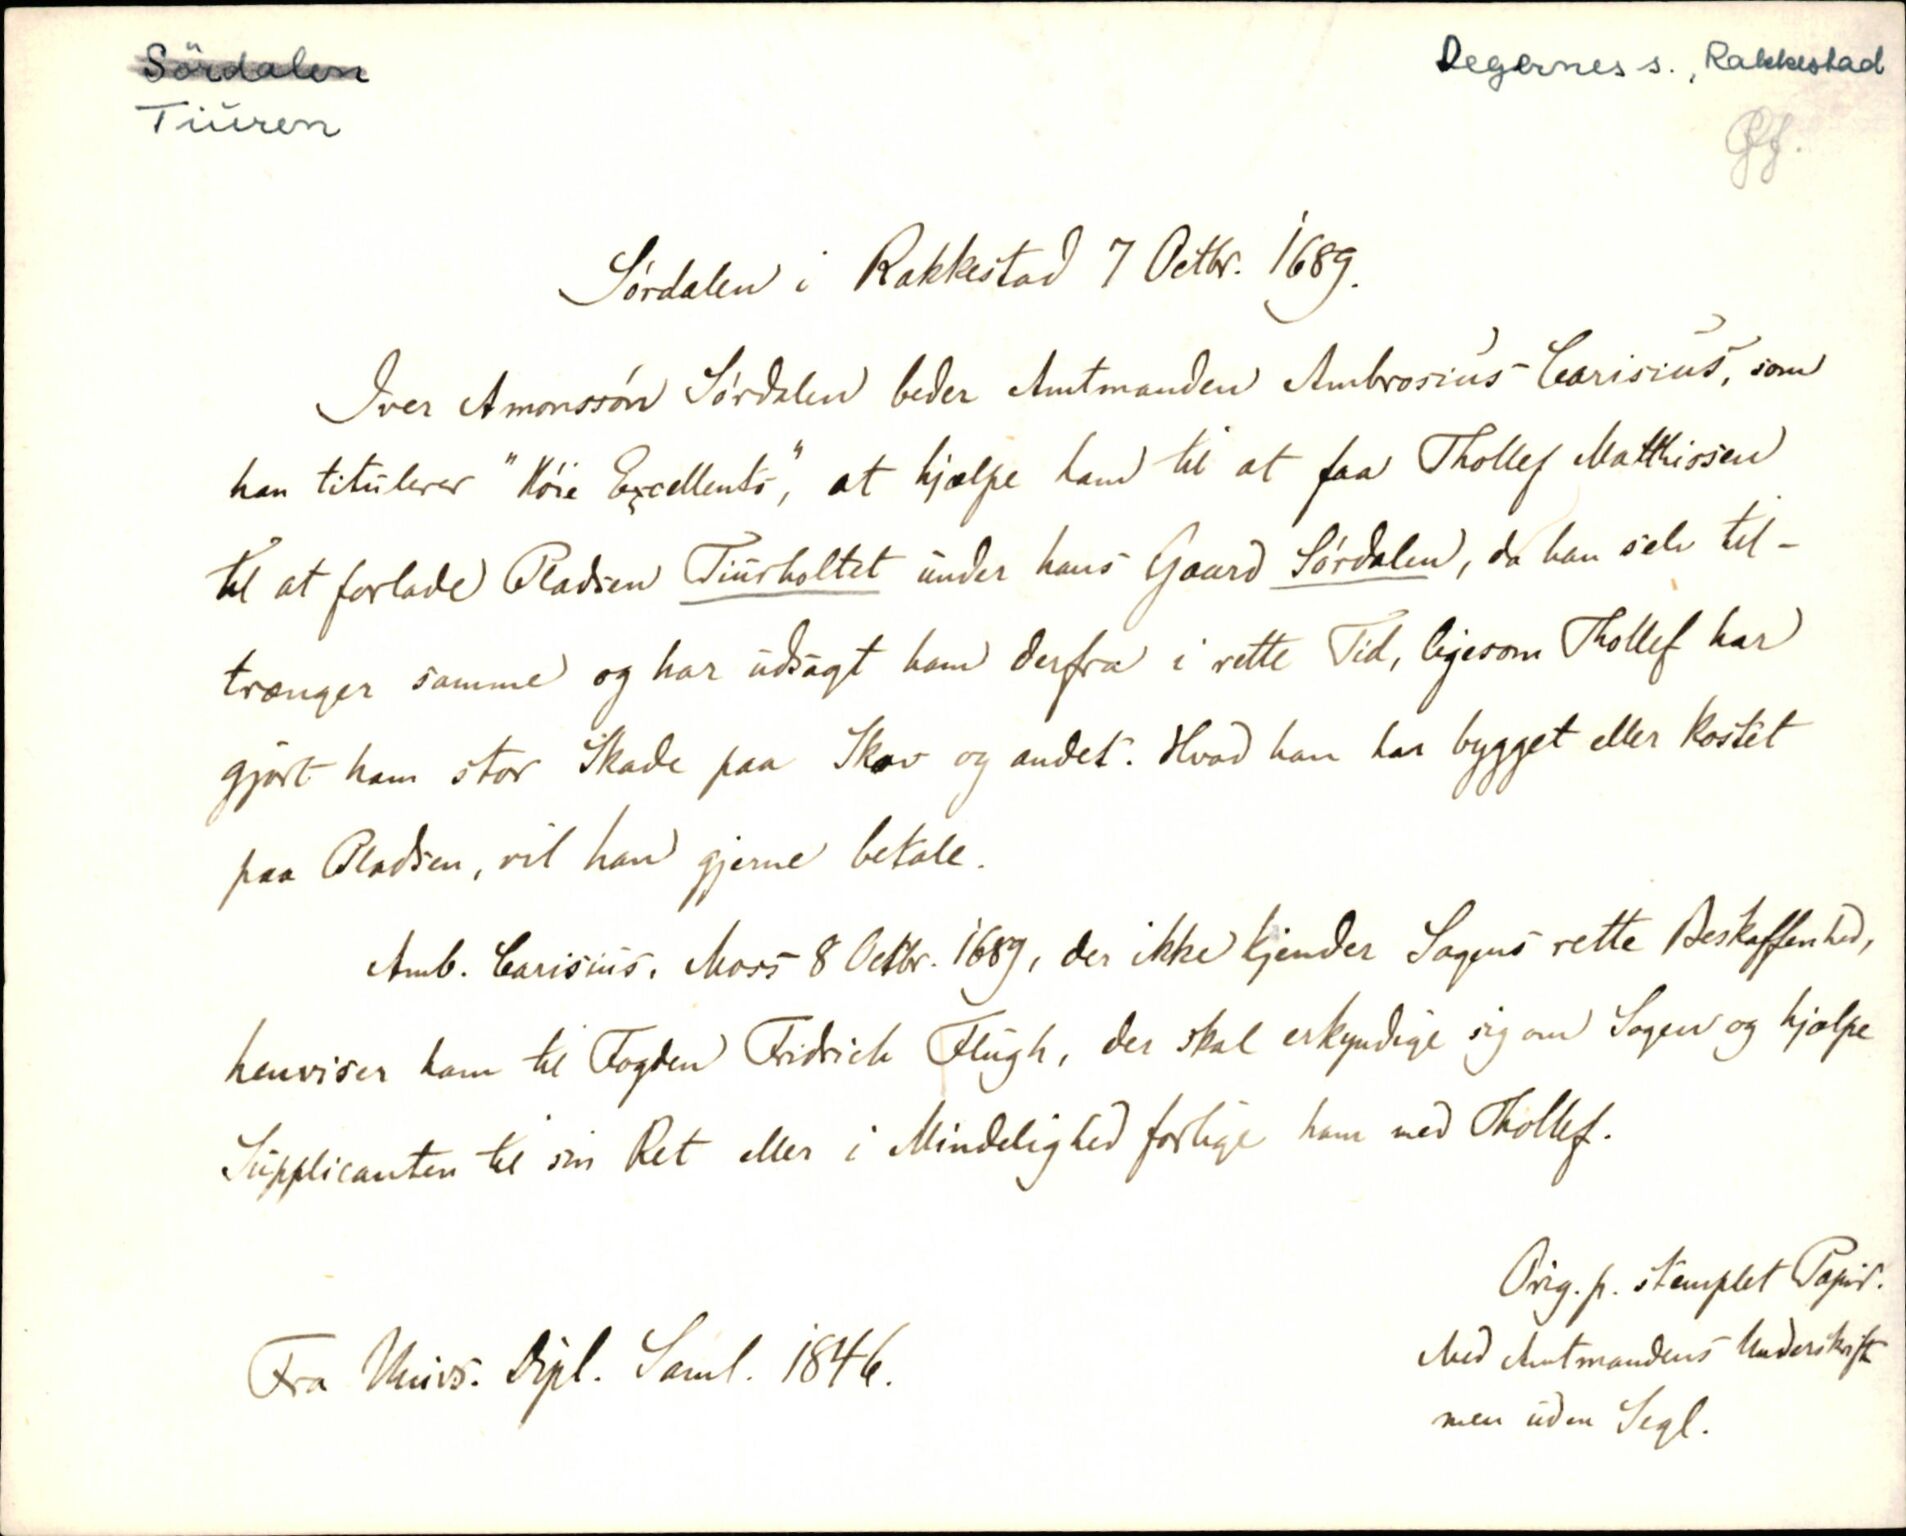 Sördalen
Tiuren
Degernes s., Rakkestad
Sördalen i Rakkestad 7 Octbr. 1689.
Iver Amonssön Sördalen beder Amtmanden Ambrosius Carisius, som
han titulerer "Höie Excellents", at hjælpe ham til at faa Thollef Matthissen
til at forlade Pladsen Tiurholtet under hans Gaard Sördalen, da han selv til-
trænger samme og har udsagt ham derfra i rette Tid, ligesom Thollef har
gjört ham stor Skade paa Skov og andet. Hvad han har bygget eller kostet
paa Pladsen, vil han gjerne betale.
Amb. Carisius, Moss 8 Octbr. 1689, der ikke kjender Sagens rette Beskaffenhed,
henviser ham til Fogden Fridrich Flugh, der skal erkyndige sig om Sagen og hjælpe
Supplicanten til sin Ret eller i Mindelighed forlige ham med Thollef.
Orig. p. stemplet Papir.
Med Amtmandens Underskrift
men uden Segl.
Fra Univs. Dipl. Saml. 1846.